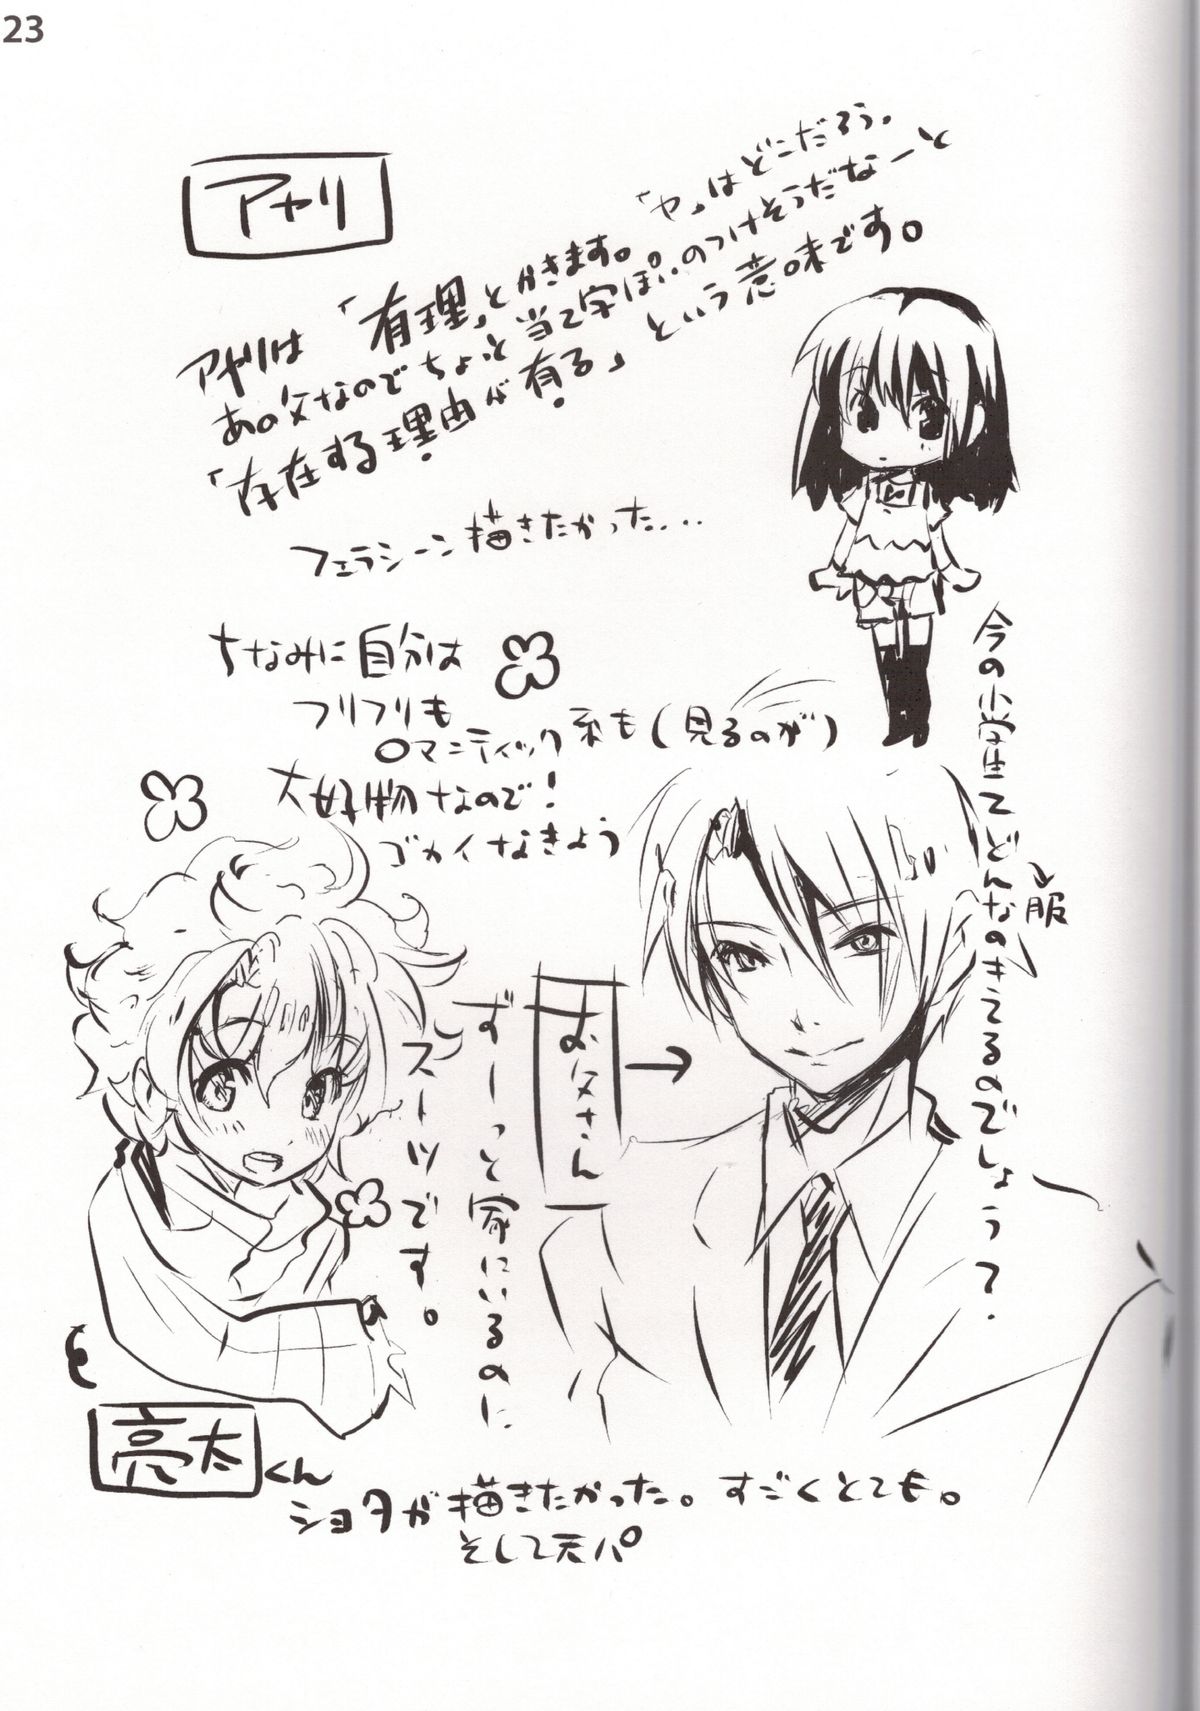 23
アヤリ
「ヤ」はどこだろう。
アヤリは「有理」とかきます。
あの父なのでちょっと当て字ぽいのつけそうだなーと
「存在する理由が有る」という意味です。
ちなみに自分は
フリフリも
ロマンティック系も(見るのが)
大好物なので!
ゴカイなきよう
今の小学生てどんなのきてるのでしょうて.
→服
お父さん
→
ずーっと家にいるのに
スーツです。
亮太くん
そして天パ